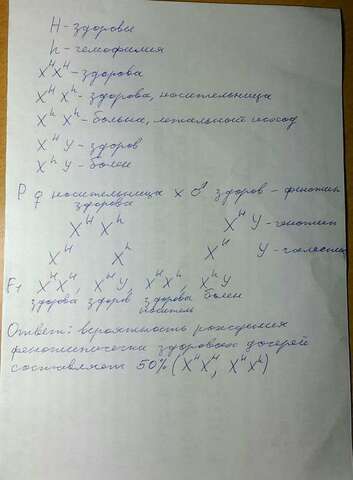 H - здоровы
h - гемофилия
X^H X^H - здорова
X^H X^h - здорова, носительница
X^h X^h - больна, летальный исход
X^H Y - здоров
X^h Y - болен
P ♀ носительница x ♂ здоров - фенотип
здорова
X^H X^h X^H Y - генотип
X^H X^h X^H Y - гаметы
F1 X^H X^H, X^H Y, X^H X^h, X^h Y
здорова здоров здорова болен
носитель
Ответ: вероятность рождения
фенотипически здоровых дочерей
составляет 50% (X^H X^H, X^H X^h)